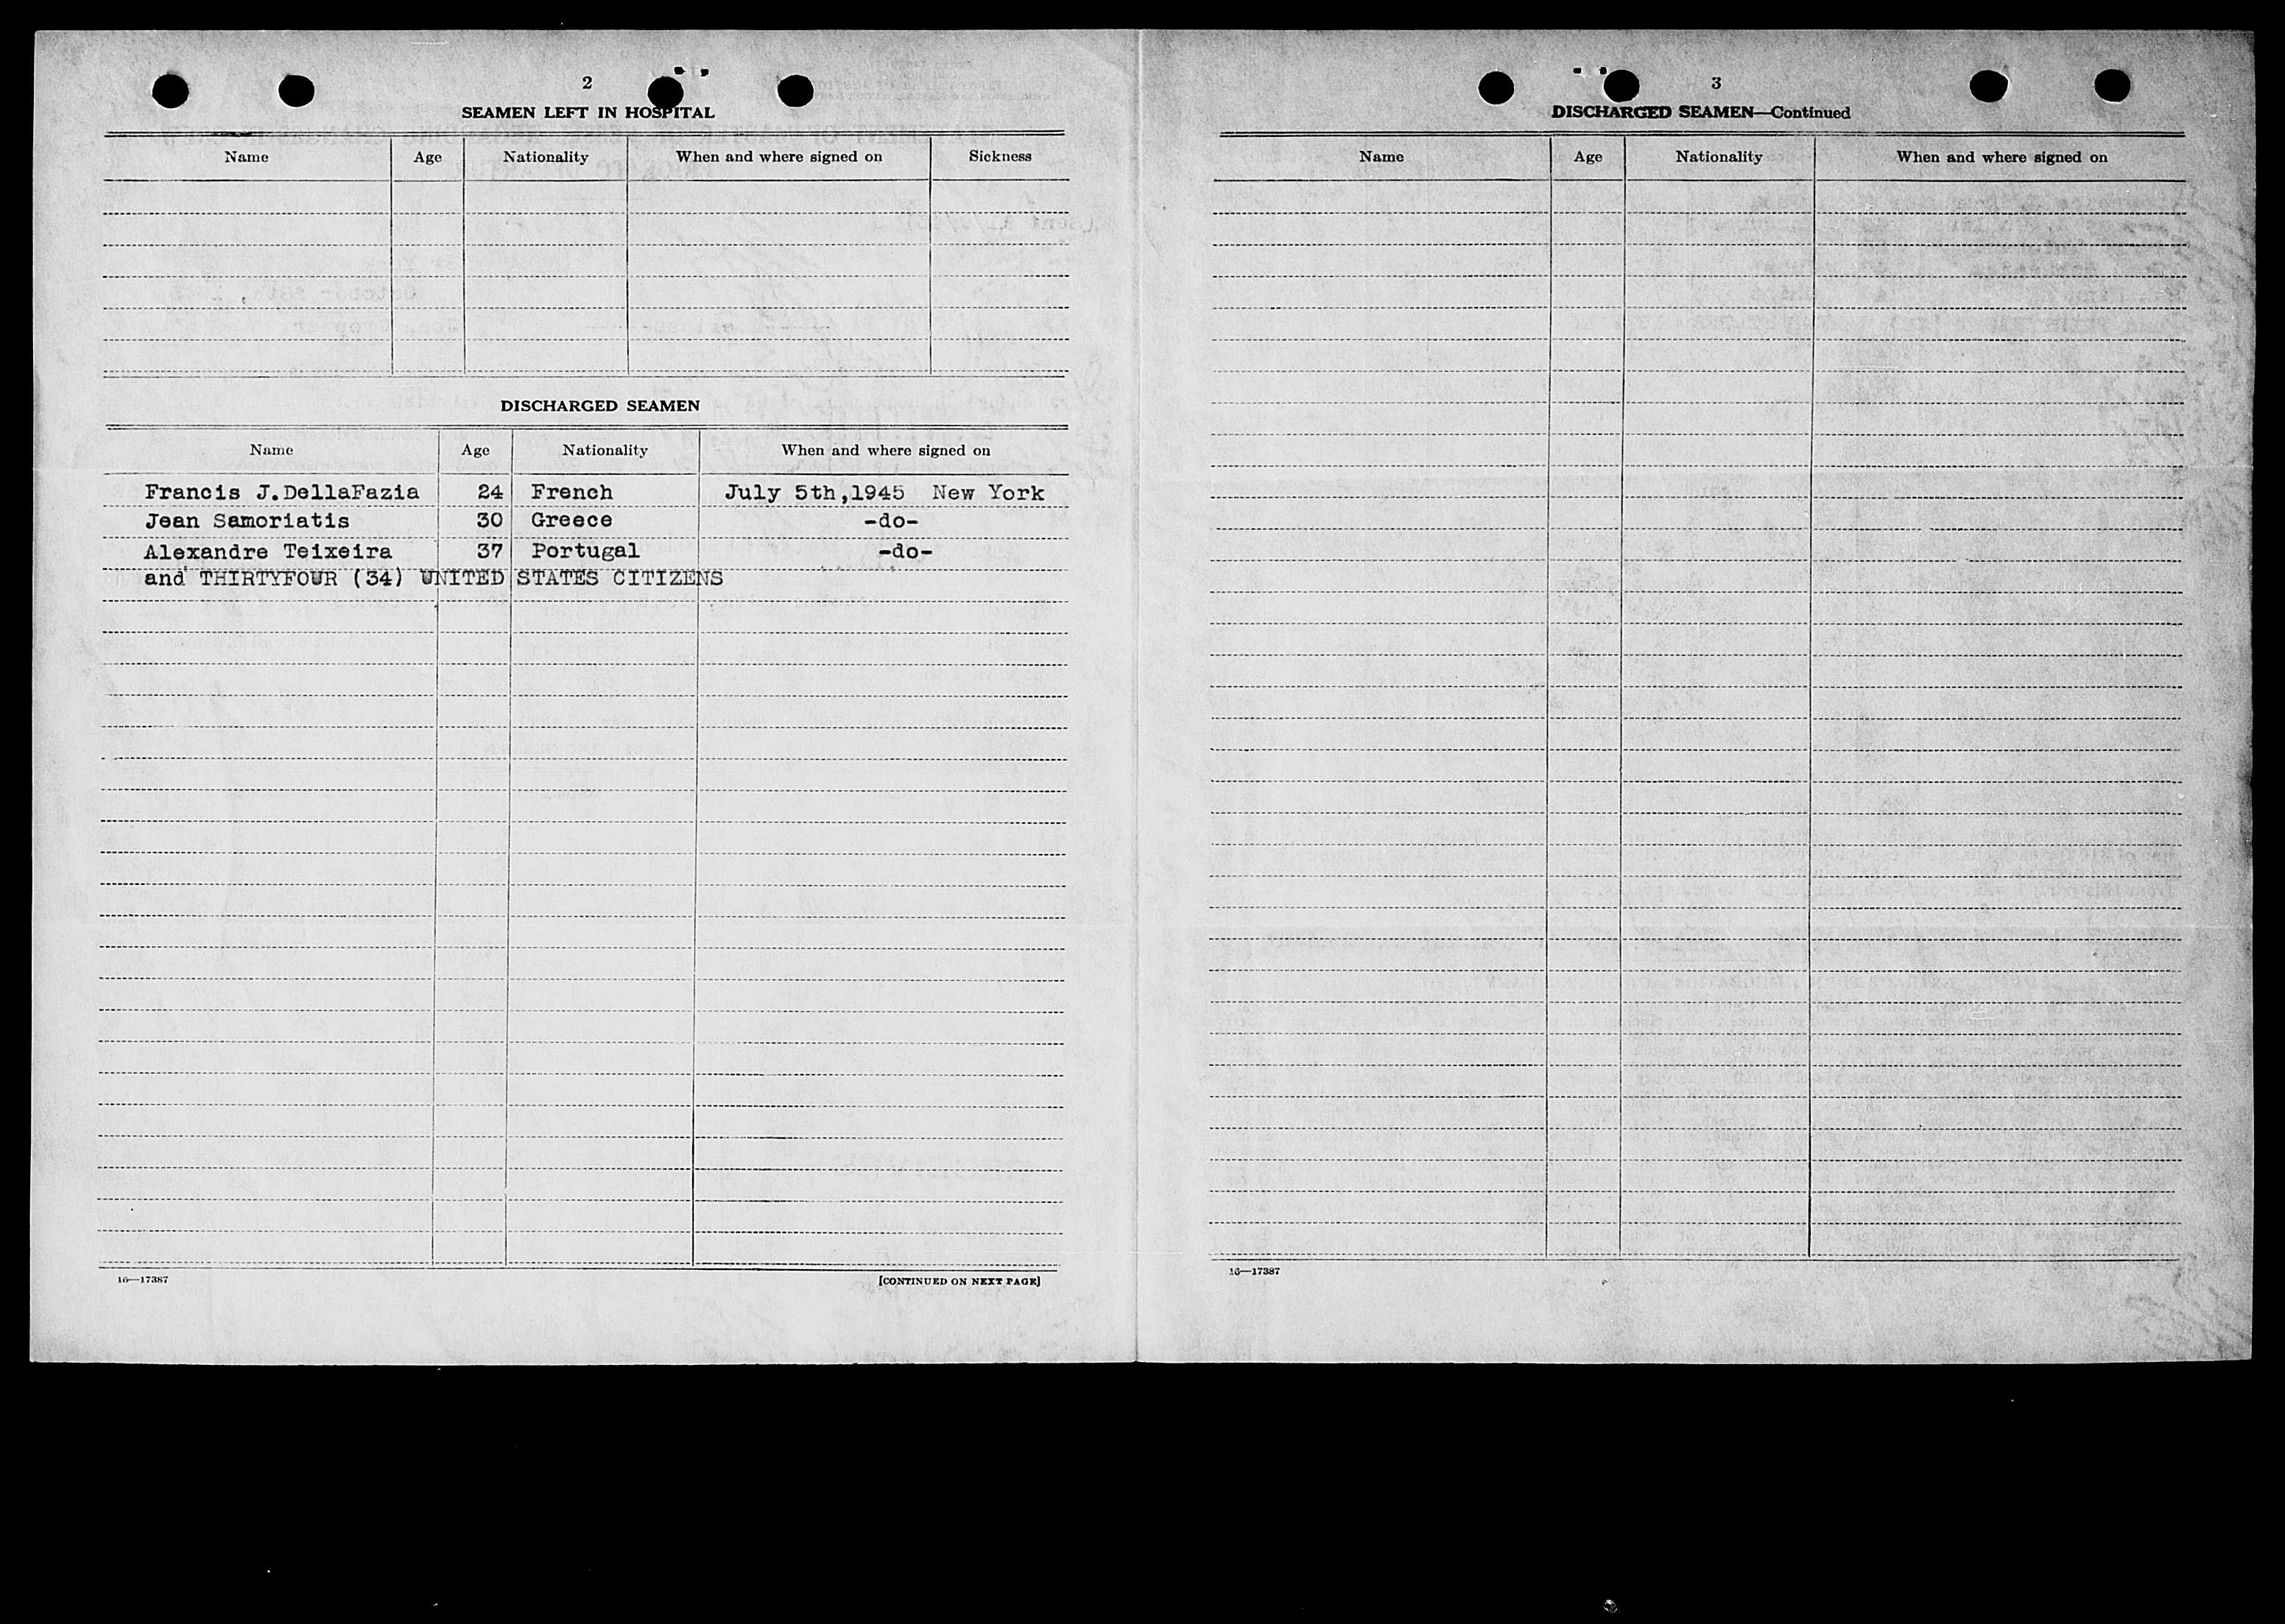 2
SEAMEN LEFT IN HOSPITAL
Name Age Nationality When and where signed on Sickness
DISCHARGED SEAMEN
Name Age Nationality When and where signed on
Francis J.DellaFazia 24 French July 5th,1945 New York
Jean Samoriatis 30 Greece -do-
Alexandre Teixeira 37 Portugal -do-
and THIRTYFOUR (34) UNITED STATES CITIZENS
16—17387 [CONTINUED ON NEXT PAGE]
3
DISCHARGED SEAMEN—Continued
Name Age Nationality When and where signed on
16—17387